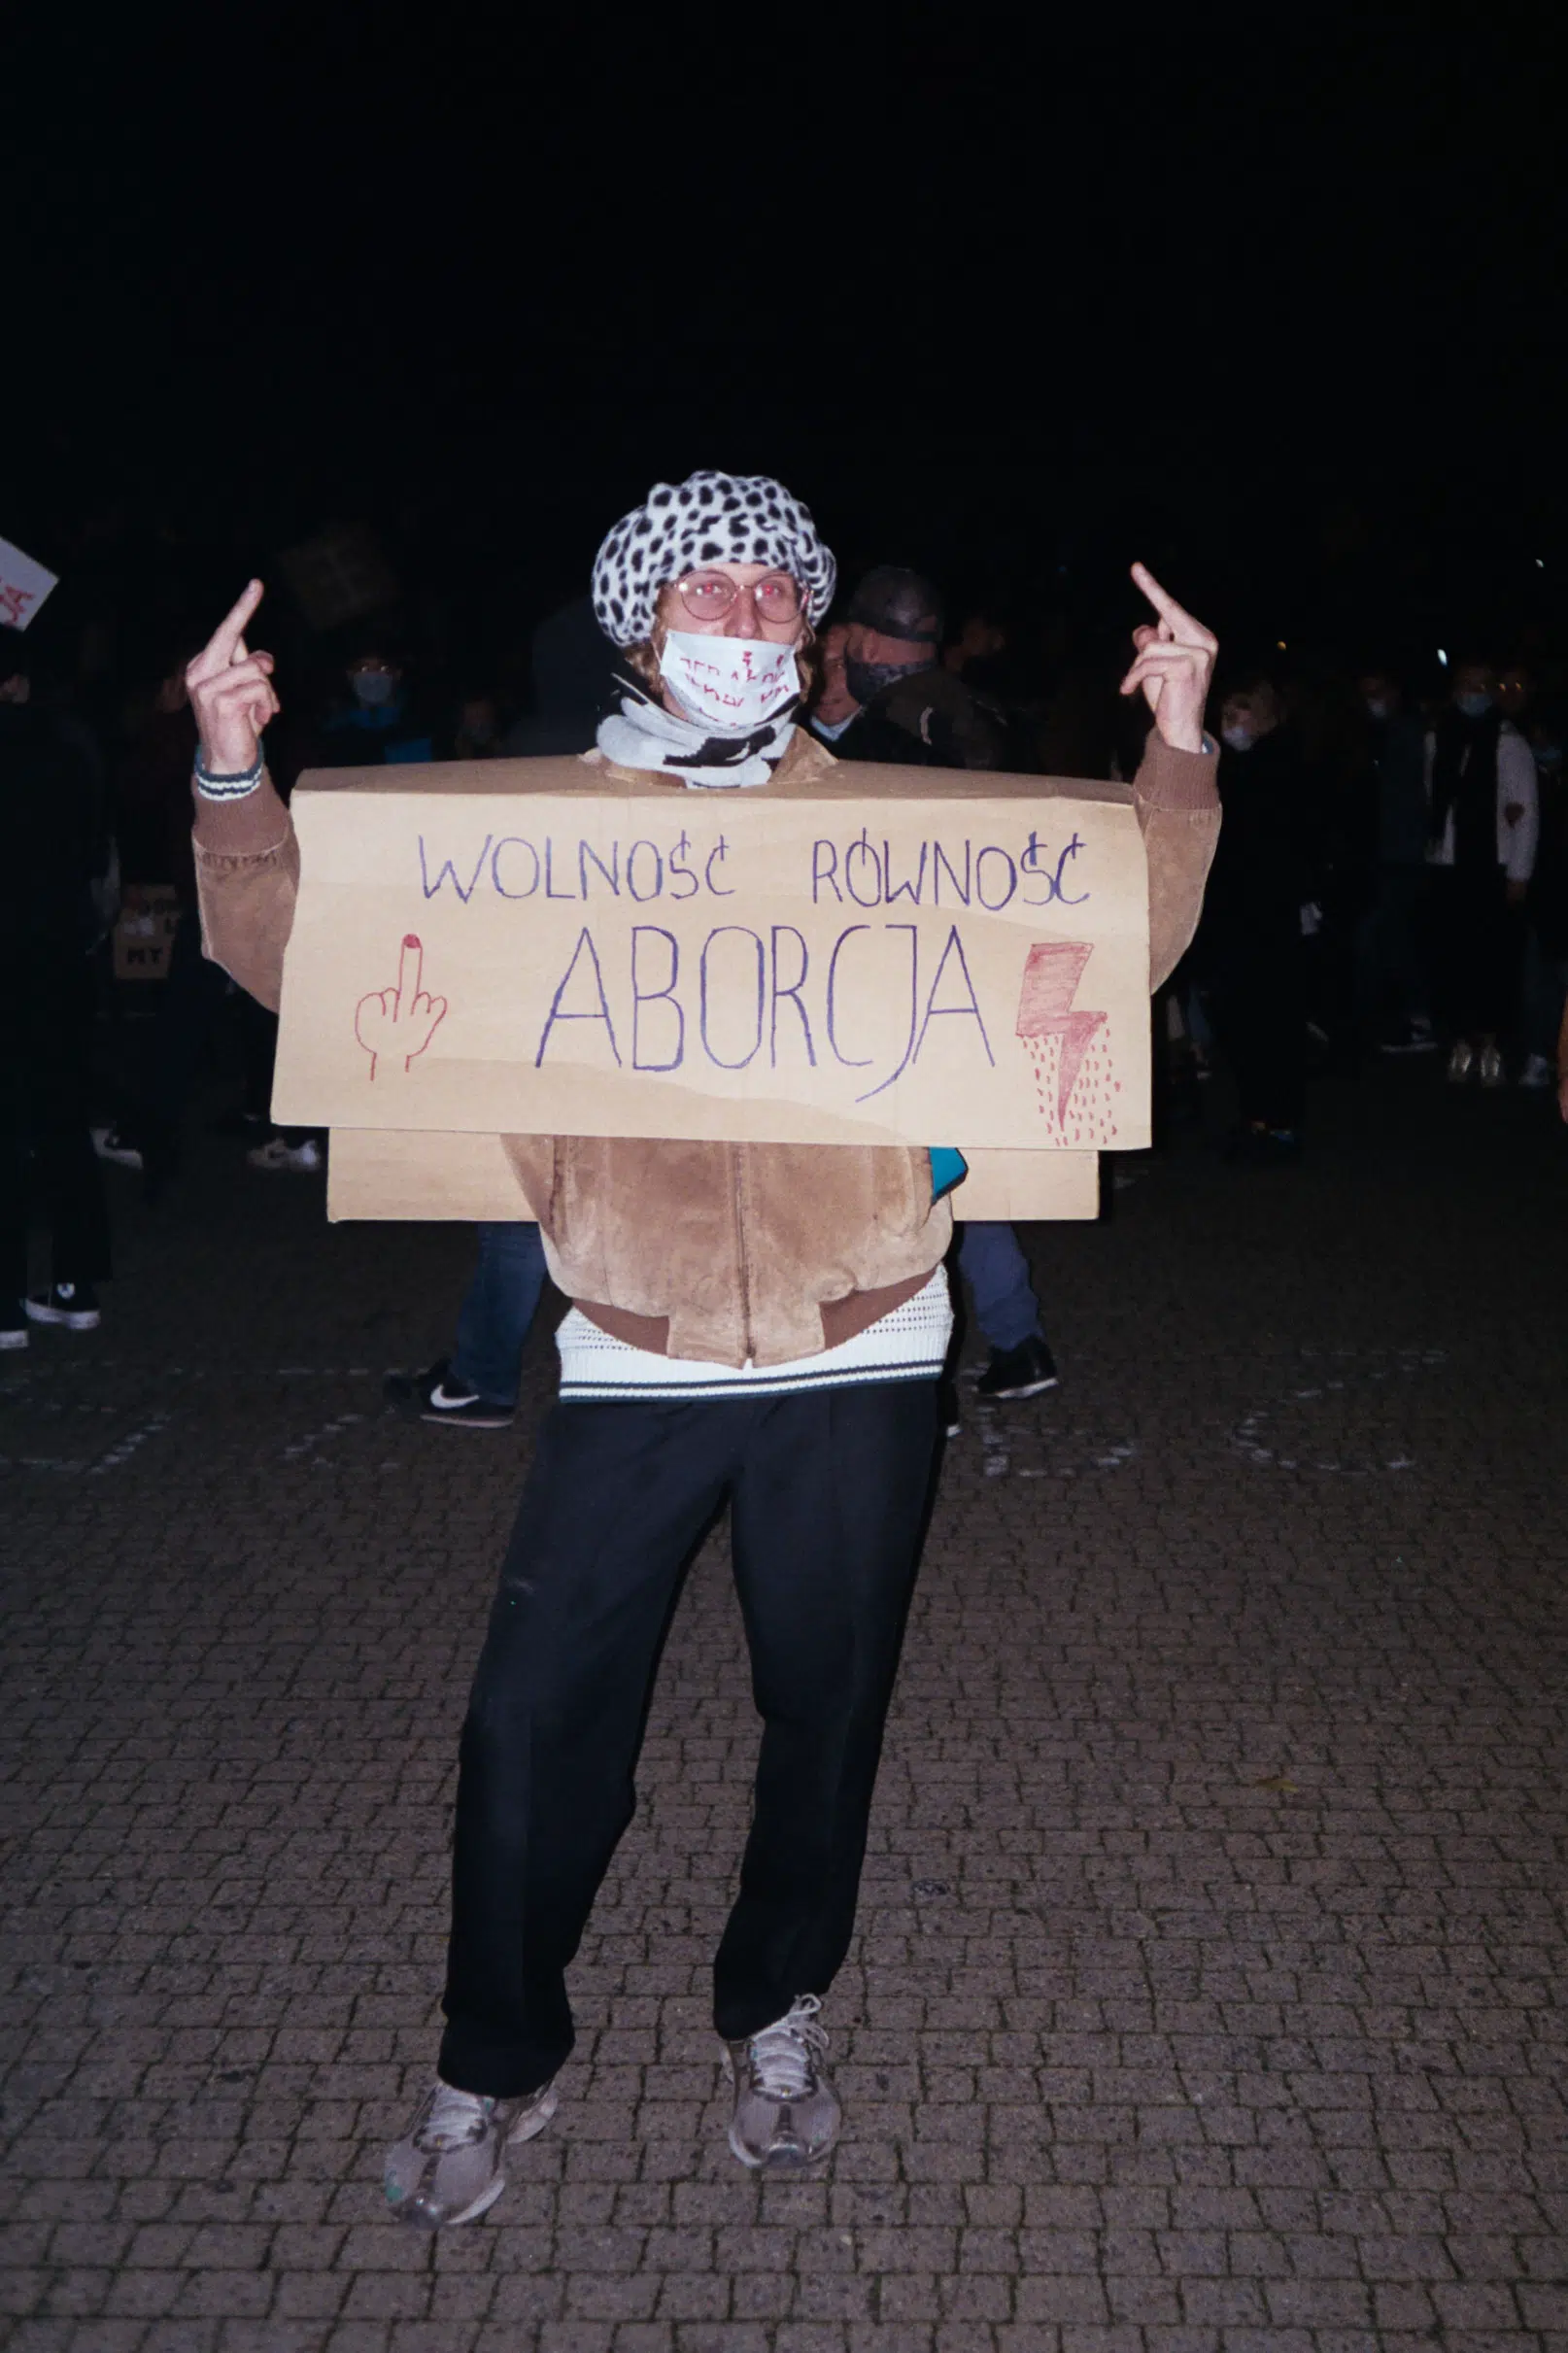 WOLNOŚĆ RÓWNOŚĆ
ABORCJA